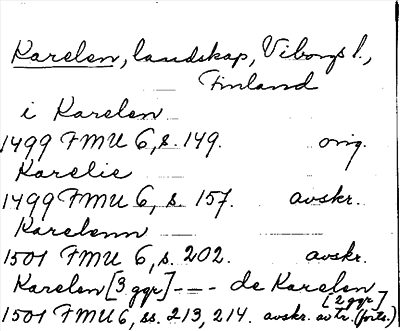 Karelen, landskap, Viborgs l.,
Finland
i Karelen
1499 FMU 6, s. 149. orig.
Karelie
1499 FMU 6, s. 157. avskr.
Karelenn
1501 FMU 6, s. 202. avskr.
Karelen [3 ggr] --- de Karelen
[2 ggr]
1501 FMU 6, ss. 213, 214. avskr. av tr. (forts.)